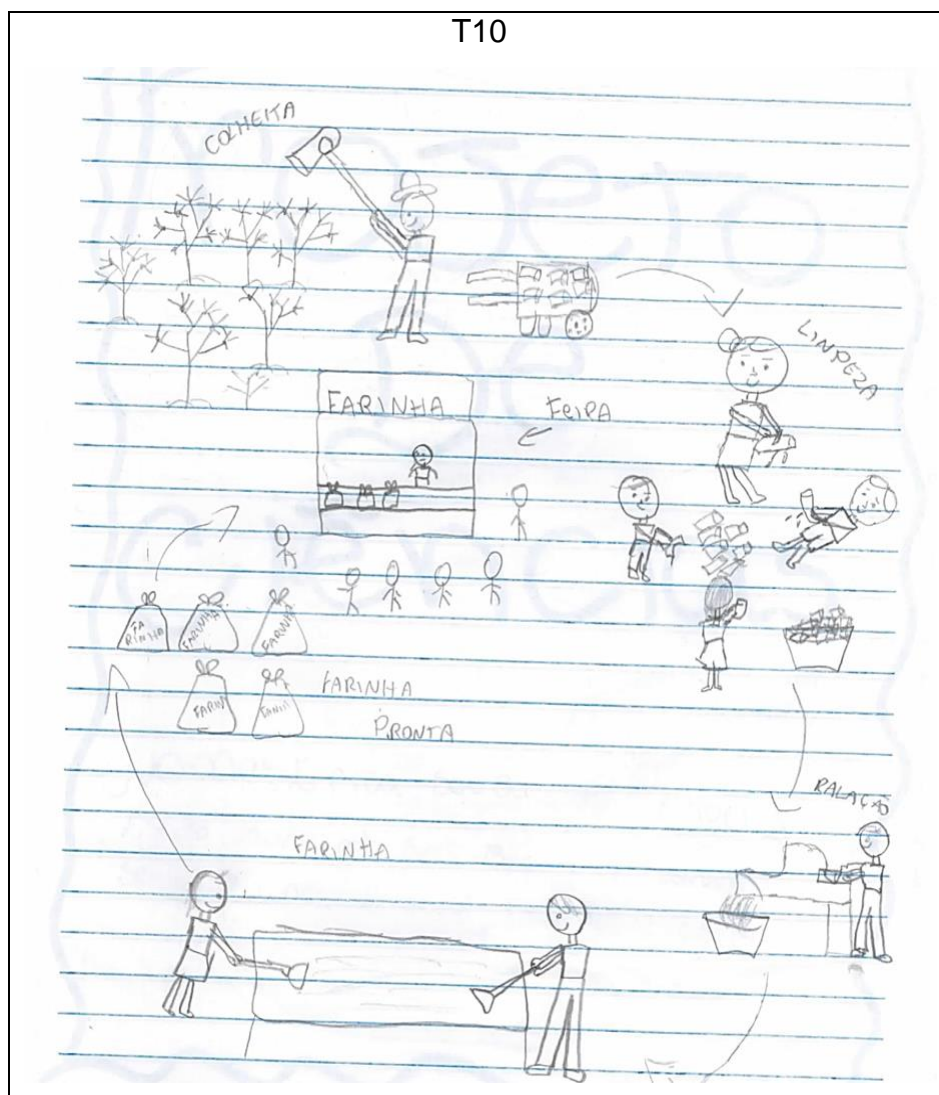 T10
COLHEITA
LINPEZA
FARINHA
FEIRA
FA
RINHA
FARINHA
FARINHA
FARIN
FARINHA
PRONTA
RALAÇÃO
FARINHA